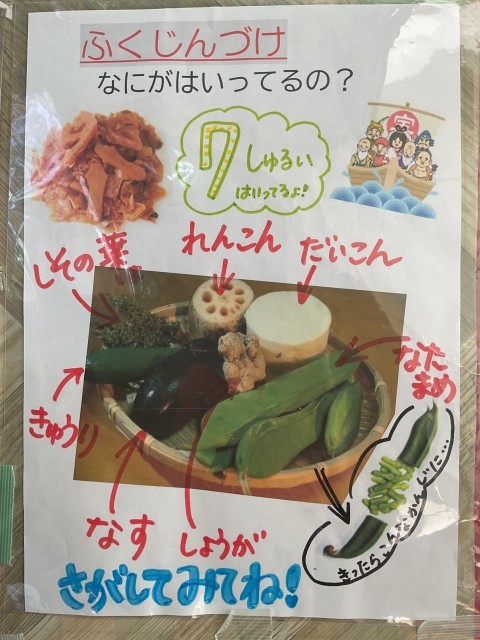 ふくじんづけ
なにがはいってるの？
7しゅるい
はいってるよ!
宝
しその葉
れんこん
だいこん
なた
まめ
きゅうり
なす
しょうが
きったらこんなかんじに…
さがしてみてね!